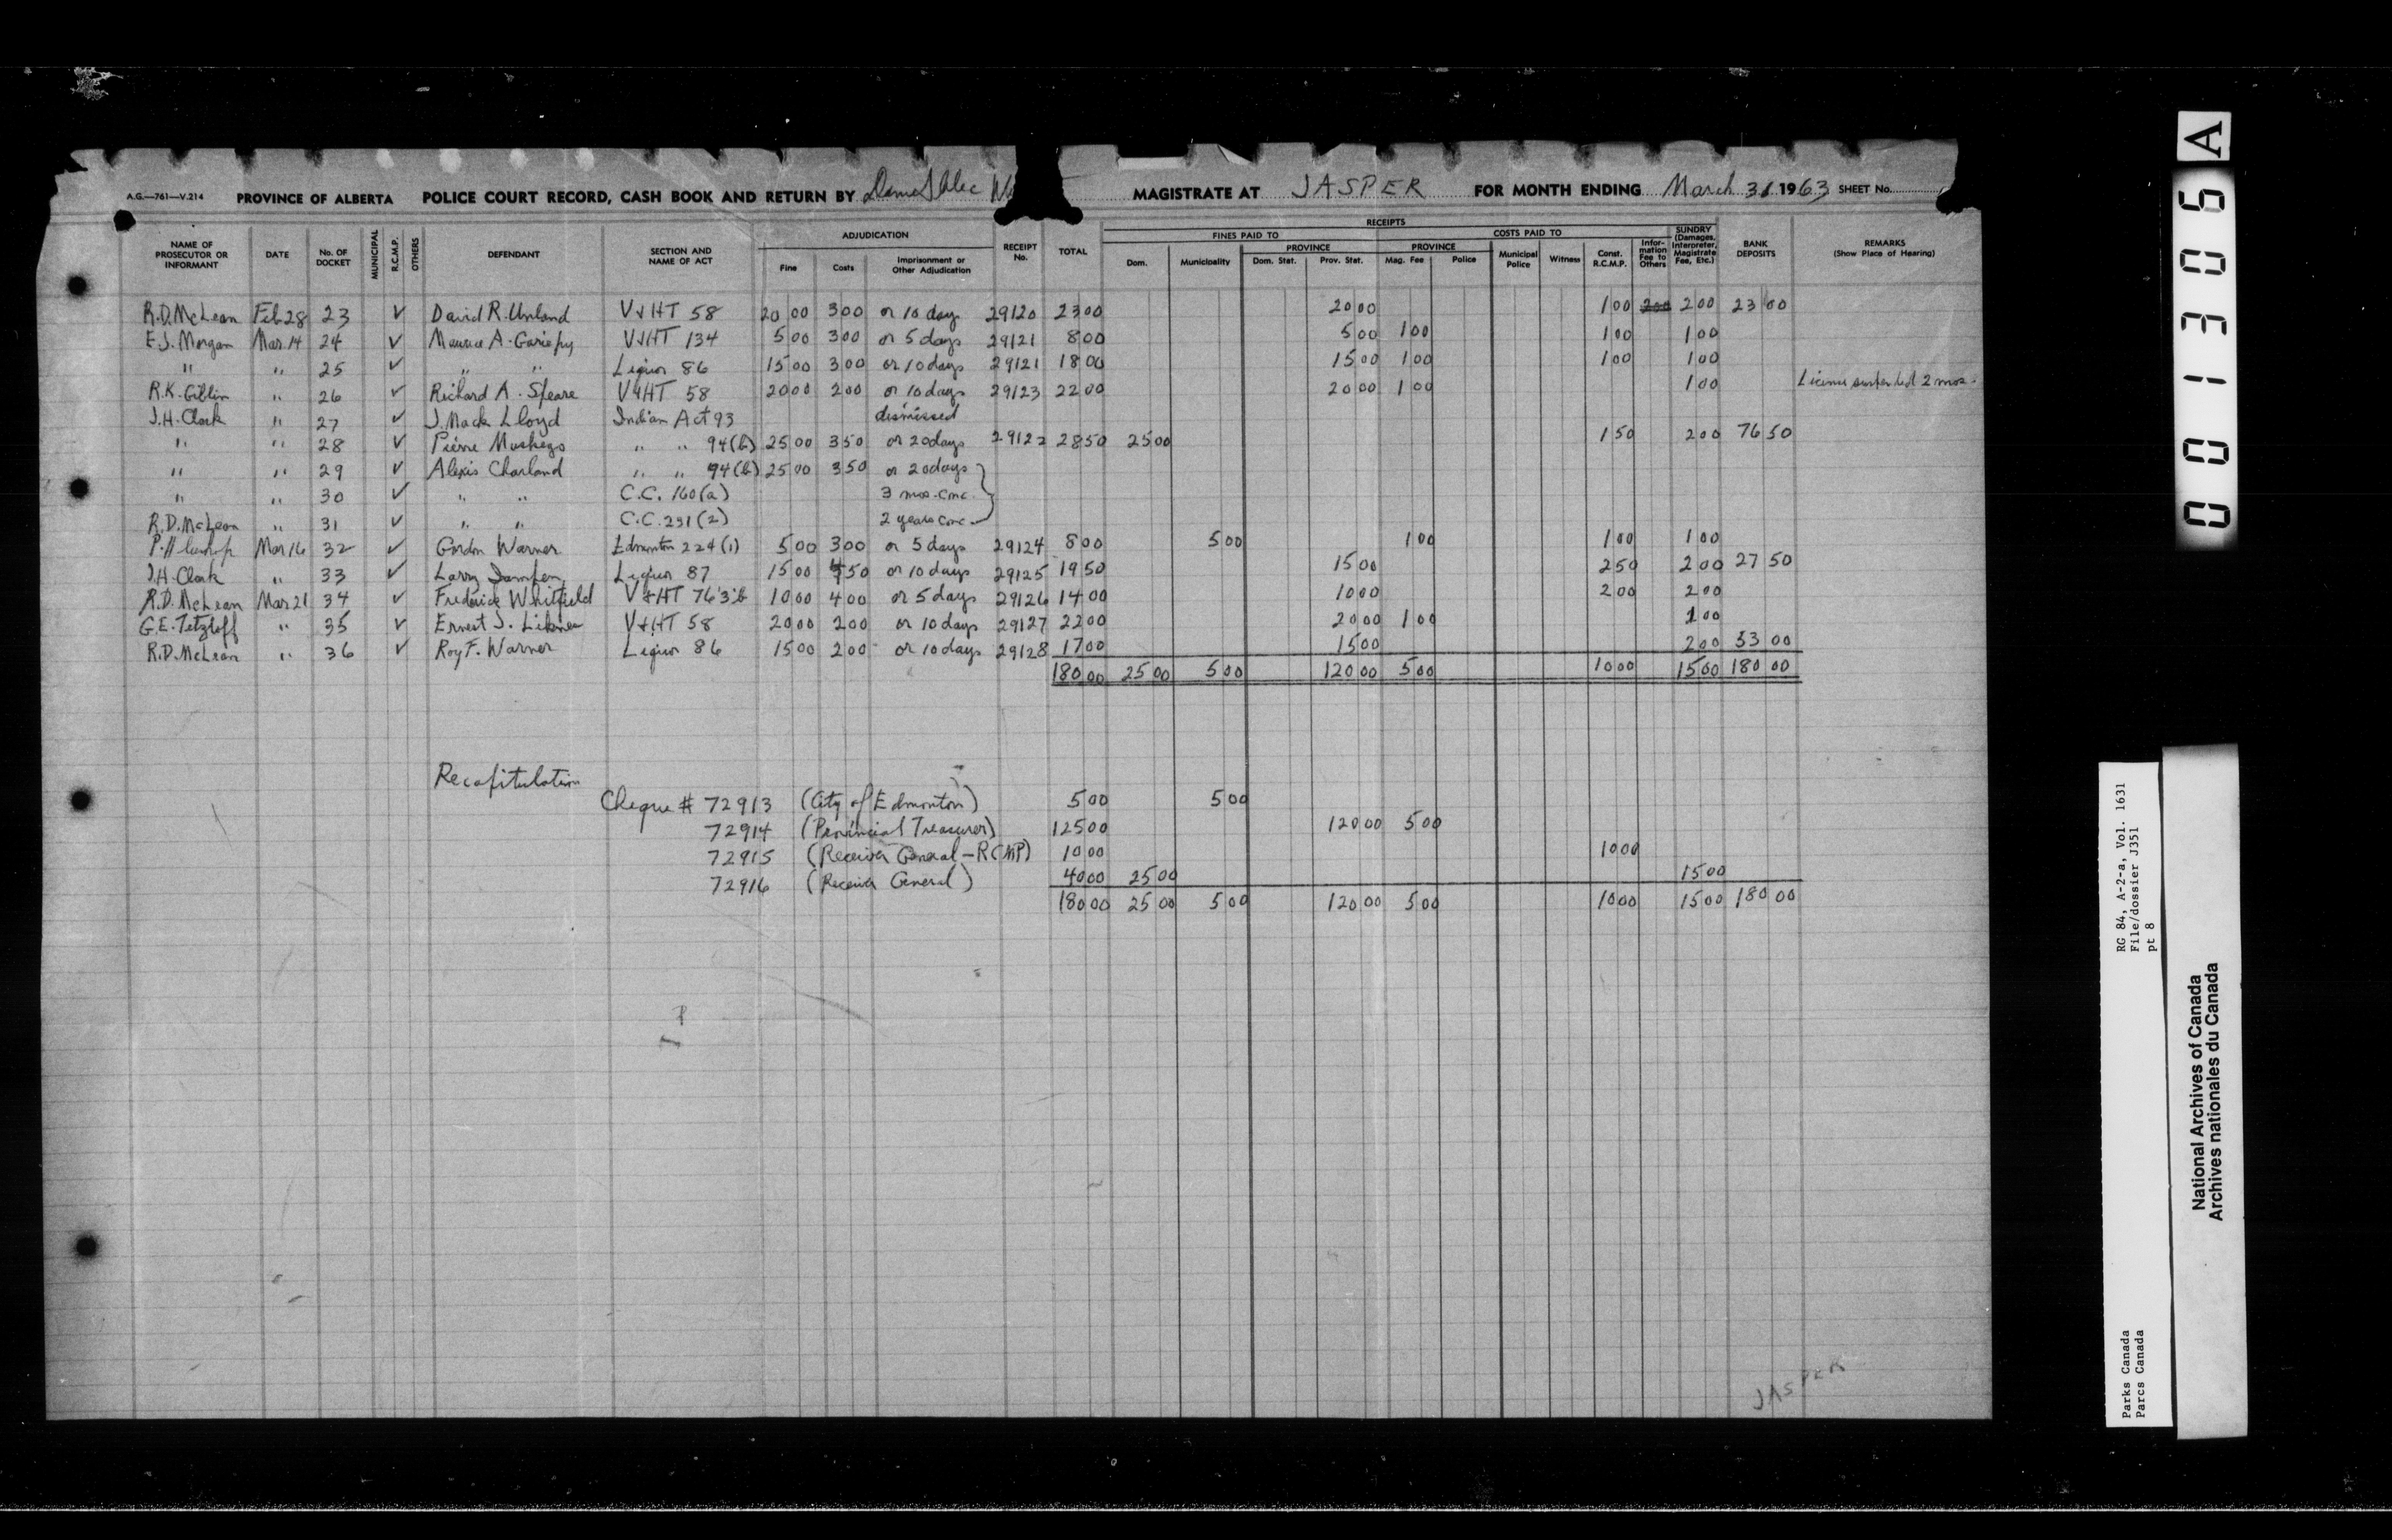 A.G.—761—V.214 PROVINCE OF ALBERTA POLICE COURT RECORD, CASH BOOK AND RETURN BY MAGISTRATE AT JASPER FOR MONTH ENDING March 31 1963 SHEET No.
RECEIPTS
ADJUDICATION FINES PAID TO COSTS PAID TO
PROVINCE PROVINCE
NAME OF PROSECUTOR OR INFORMANT DATE No. OF DOCKET MUNICIPAL R.C.M.P. OTHERS DEFENDANT SECTION AND NAME OF ACT Fine Costs Imprisonment or Other Adjudication RECEIPT No. TOTAL Dom. Municipality Dom. Stat. Prov. Stat. Mag. Fee Police Municipal Police Witness Const. R.C.M.P. Information Fee to Others SUNDRY (Damages, Interpreter, Magistrate Fee, Etc.) BANK DEPOSITS REMARKS (Show Place of Hearing)
R.D. McLean Feb 28 23 ✓ David R. Unland V & HT 58 20 00 3 00 or 10 day 29120 23 00 20 00 1 00 2 00 2 00 23 00
E.J. Morgan Mar. 14 24 ✓ Maurice A. Gariepy V & HT 134 5 00 3 00 or 5 days 29121 8 00 5 00 1 00 1 00 1 00
" " 25 ✓ " " Liquor 86 15 00 3 00 or 10 days 29121 18 00 15 00 1 00 1 00 1 00
R.K. Giblin " 26 ✓ Richard A. Speare V & HT 58 20 00 2 00 or 10 days 29123 22 00 20 00 1 00 1 00 License suspended 2 mos.
J.H. Clark " 27 ✓ J. Mack Lloyd Indian Act 93 dismissed
" " 28 ✓ Pierre Muskego " " 94(b) 25 00 3 50 or 20 days 29122 28 50 25 00 1 50 2 00 76 50
" " 29 ✓ Alexis Charland " " 94(b) 25 00 3 50 or 20 days
" " 30 ✓ " " C.C. 160(a) 3 mos. conc.
R.D. McLean " 31 ✓ " " C.C. 291(2) 2 years conc.
Mar 16 32 ✓ Gordon Warner Edmonton 224(1) 5 00 3 00 or 5 days 29124 8 00 5 00 1 00 1 00 1 00
J.H. Clark " 33 ✓ Larry Liquor 87 15 00 4 50 or 10 days 29125 19 50 15 00 2 50 2 00 27 50
R.D. McLean Mar 21 34 ✓ Frederick Whitfield V & HT 76'3'b 10 00 4 00 or 5 days 29126 14 00 10 00 2 00 2 00
G.E. Tetzloff " 35 ✓ Ernest J. V & HT 58 20 00 2 00 or 10 days 29127 22 00 20 00 1 00 1 00
R.D. McLean " 36 ✓ Roy F. Warner Liquor 86 15 00 2 00 or 10 days 29128 17 00 15 00 2 00 53 00
180 00 25 00 5 00 120 00 5 00 10 00 15 00 180 00
Recapitulation
Cheque # 72913 (City of Edmonton) 5 00 5 00
72914 (Provincial Treasurer) 125 00 120 00 5 00
72915 (Receiver General - RCMP) 10 00 10 00
72916 (Receiver General) 40 00 25 00 15 00
180 00 25 00 5 00 120 00 5 00 10 00 15 00 180 00
JASPER
001306 A
RG 84, A-2-a, Vol. 1631
File/dossier J351
pt 8
Parks Canada
Parcs Canada
National Archives of Canada
Archives nationales du Canada